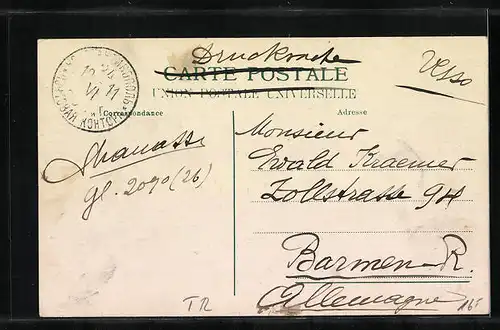 Drucksache
Verso
CARTE POSTALE
UNION POSTALE UNIVERSELLE
Correspondance
Adresse
gl. 2090 (26)
Monsieur
Ewald Kraemer
Zollstrasse 94
Barmen-R.
Allemagne
TR